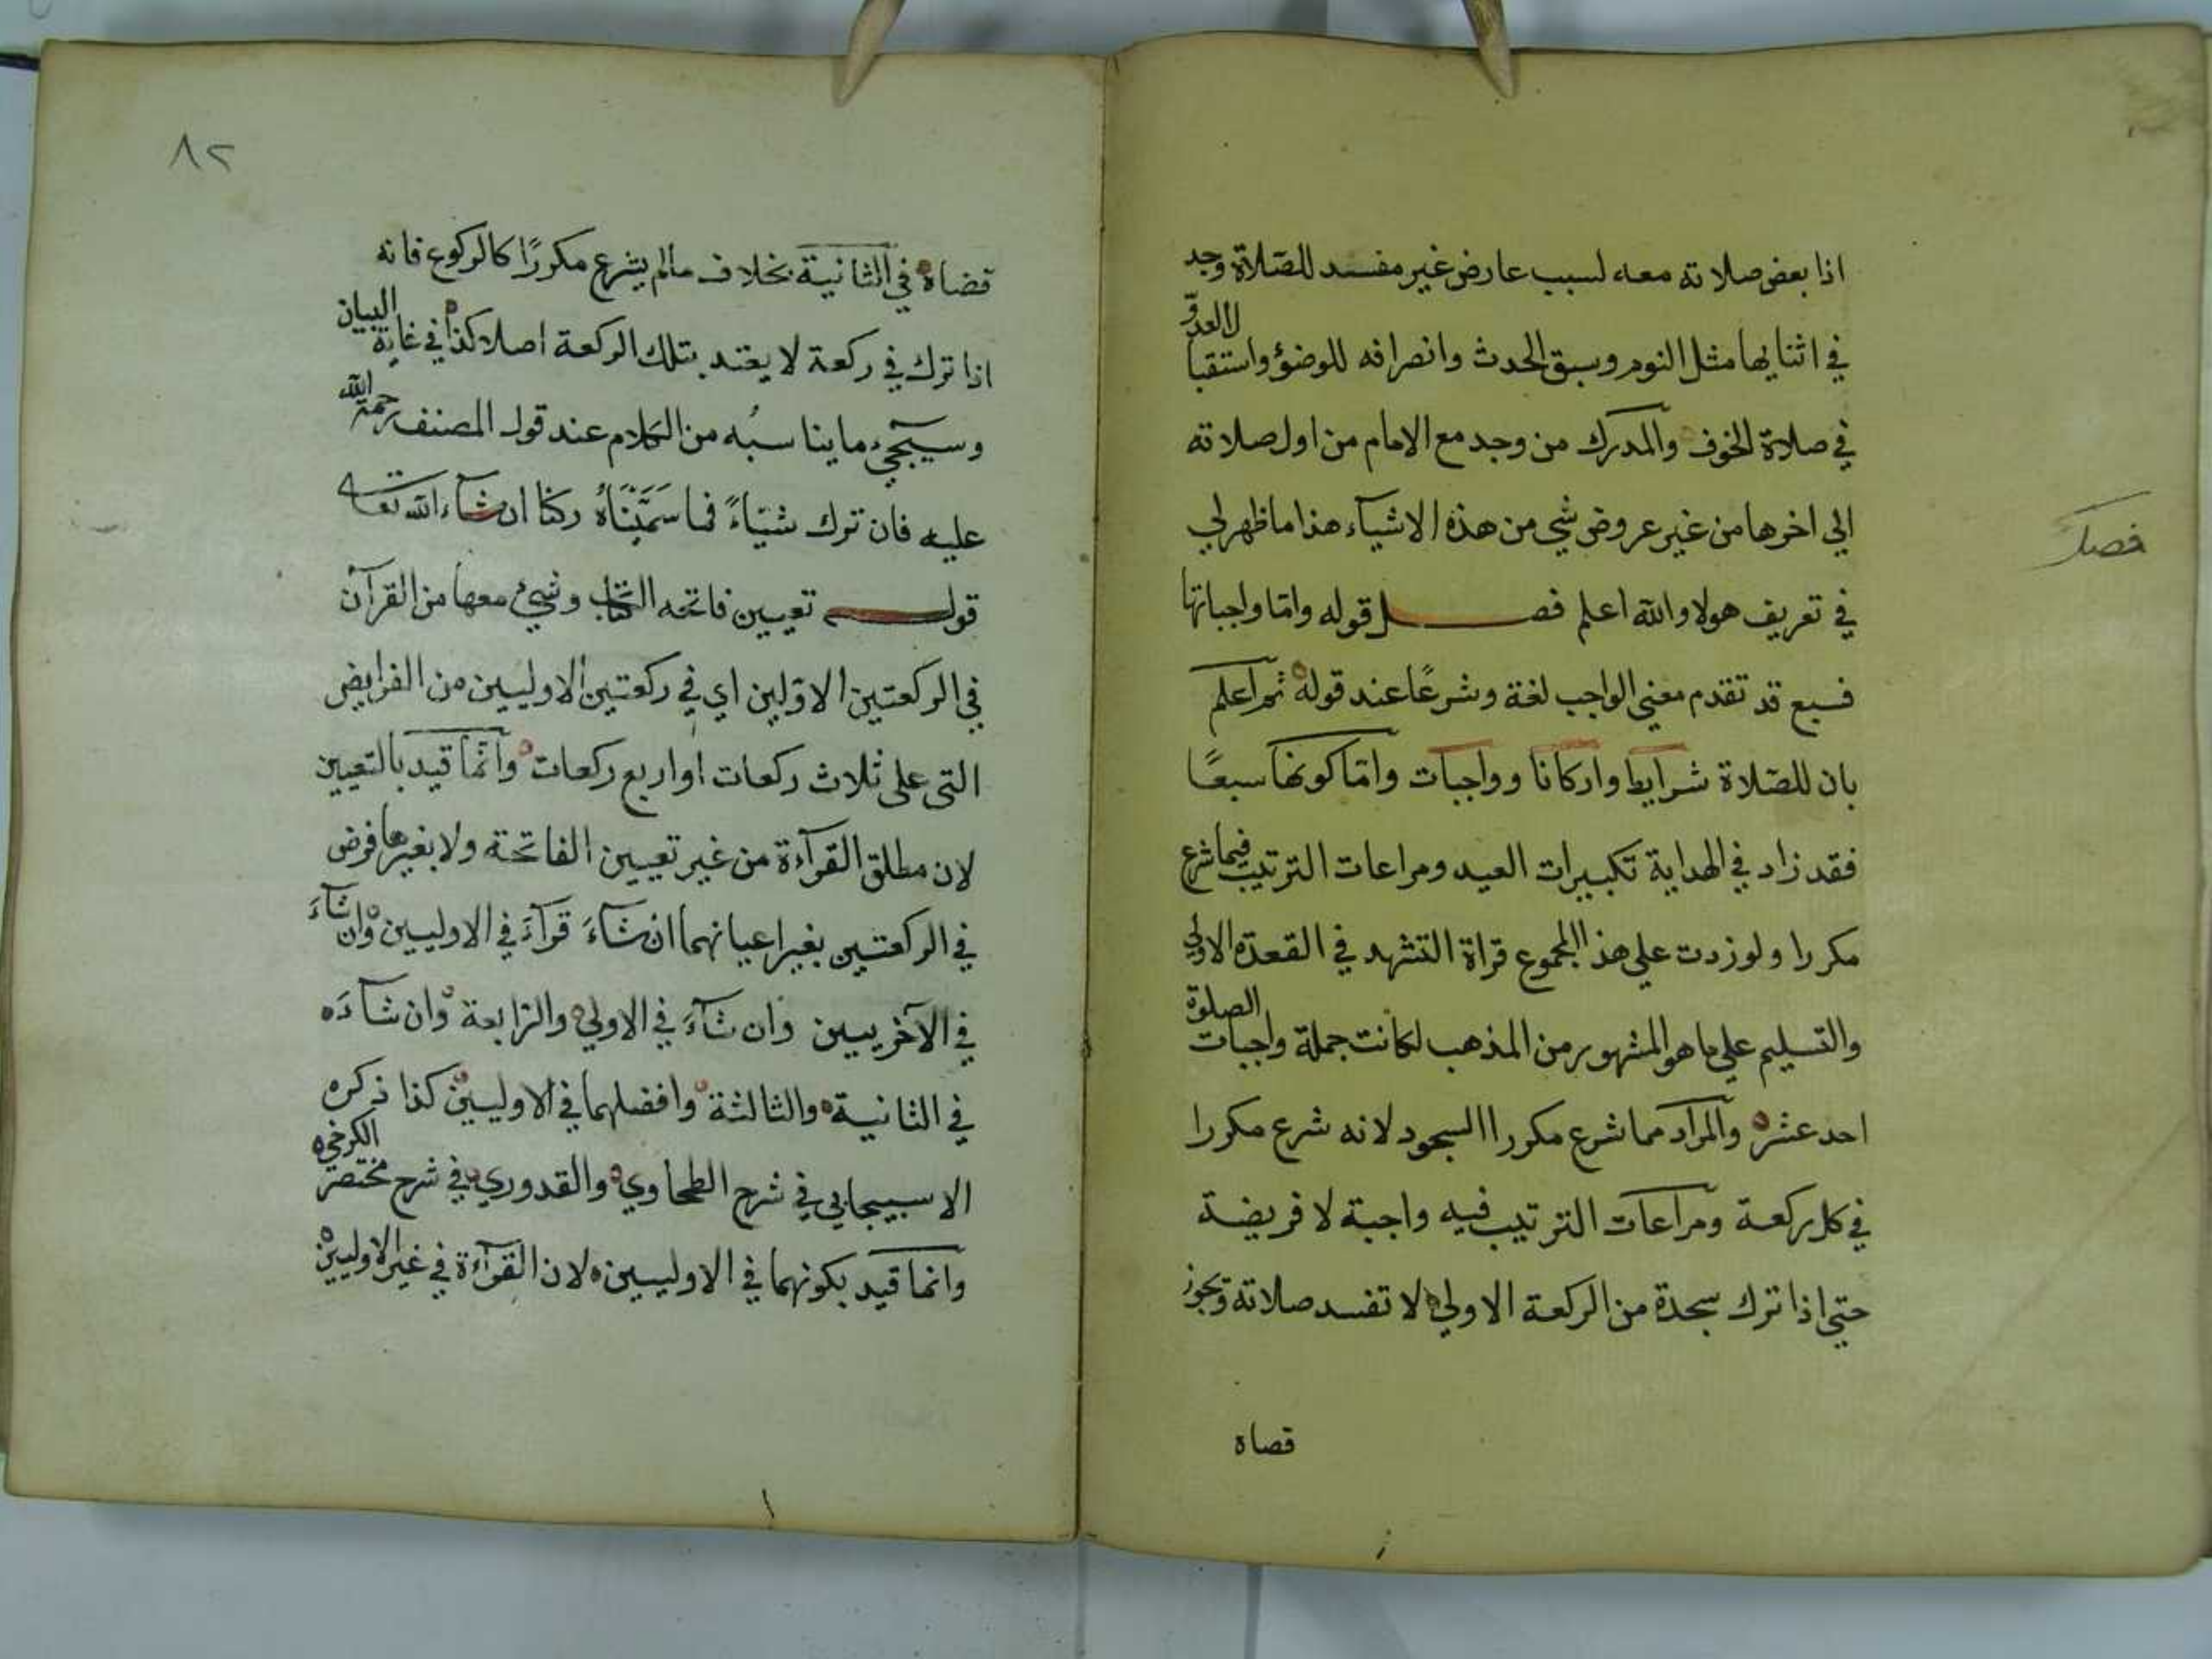 اذا بعض صلاته معه لسبب عارض غير مفسد للصلاة وجد
في اثنايها مثل النوم وسبق الحدث وانصرافه للوضؤ واستقبا لالعدوّ
في صلاة الخوف والمدرك من وجد مع الامام من اول صلاته
الي اخرها من غير عروض شي من هذه الاشيآء هذا ما ظهر لي
في تعريف هولا والله اعلم فصل قوله وامّا واجباتها
فسبع قد تقدم معني الواجب لغة وشرعًا عند قوله ثم اعلم
بان للصّلاة شرايط واركانا وواجبات وامّا كونها سبعًا
فقد زاد في الهداية تكبيرات العيد ومراعات الترتيب فيما شرع
مكررا ولو زدت علي هذا المجموع قراة التشهد في القعدة الاولي
والتسليم علي ما هو المشهور من المذهب لكانت جملة واجبات الصلوة
احد عشر والمراد مما شرع مكررا السجود لانه شرع مكررا
في كل ركعة ومراعات الترتيب فيه واجبة لا فريضة
حتي اذا ترك سجدة من الركعة الاولي لا تفسد صلاته وتجوز
قصاة
فصل
٨٢
قضاة في الثانية بخلاف مالم يشرع مكررًا كالركوع فانه
اذا ترك في ركعة لا يعتد بتلك الركعة اصلا كذا في غاية البيان
وسيجيء ما يناسبُه من الكلام عند قول المصنف رحمة الله
عليه فان ترك شيّاءً فما سَمَّيْنَاهُ ركنا ان شآء الله تعالى
قوله تعيين فاتحه الكتاب وشيء معها من القرآن
في الركعتين الاوّلين اي في ركعتين الاوليين من الفرايض
التى على ثلاث ركعات او اربع ركعات وانّما قيد بالتعيين
لان مطلق القرآءة من غير تعيين الفاتحة ولا بغيرها فرض
في الركعتين بغير اعيانهما ان شآءَ قرآءَ في الاوليين وان شآءَ
في الآخريين وان شآءَ في الاولي والرابعة وان شآءَ
في الثانية والثالثة وافضلهما في الاوليين كذا ذكره
الاسبيجابي في شرح الطحاوي والقدوري في شرح مختصر الكرخي
وانما قيد بكونهما في الاوليين لان القرآءة في غير الاوليين